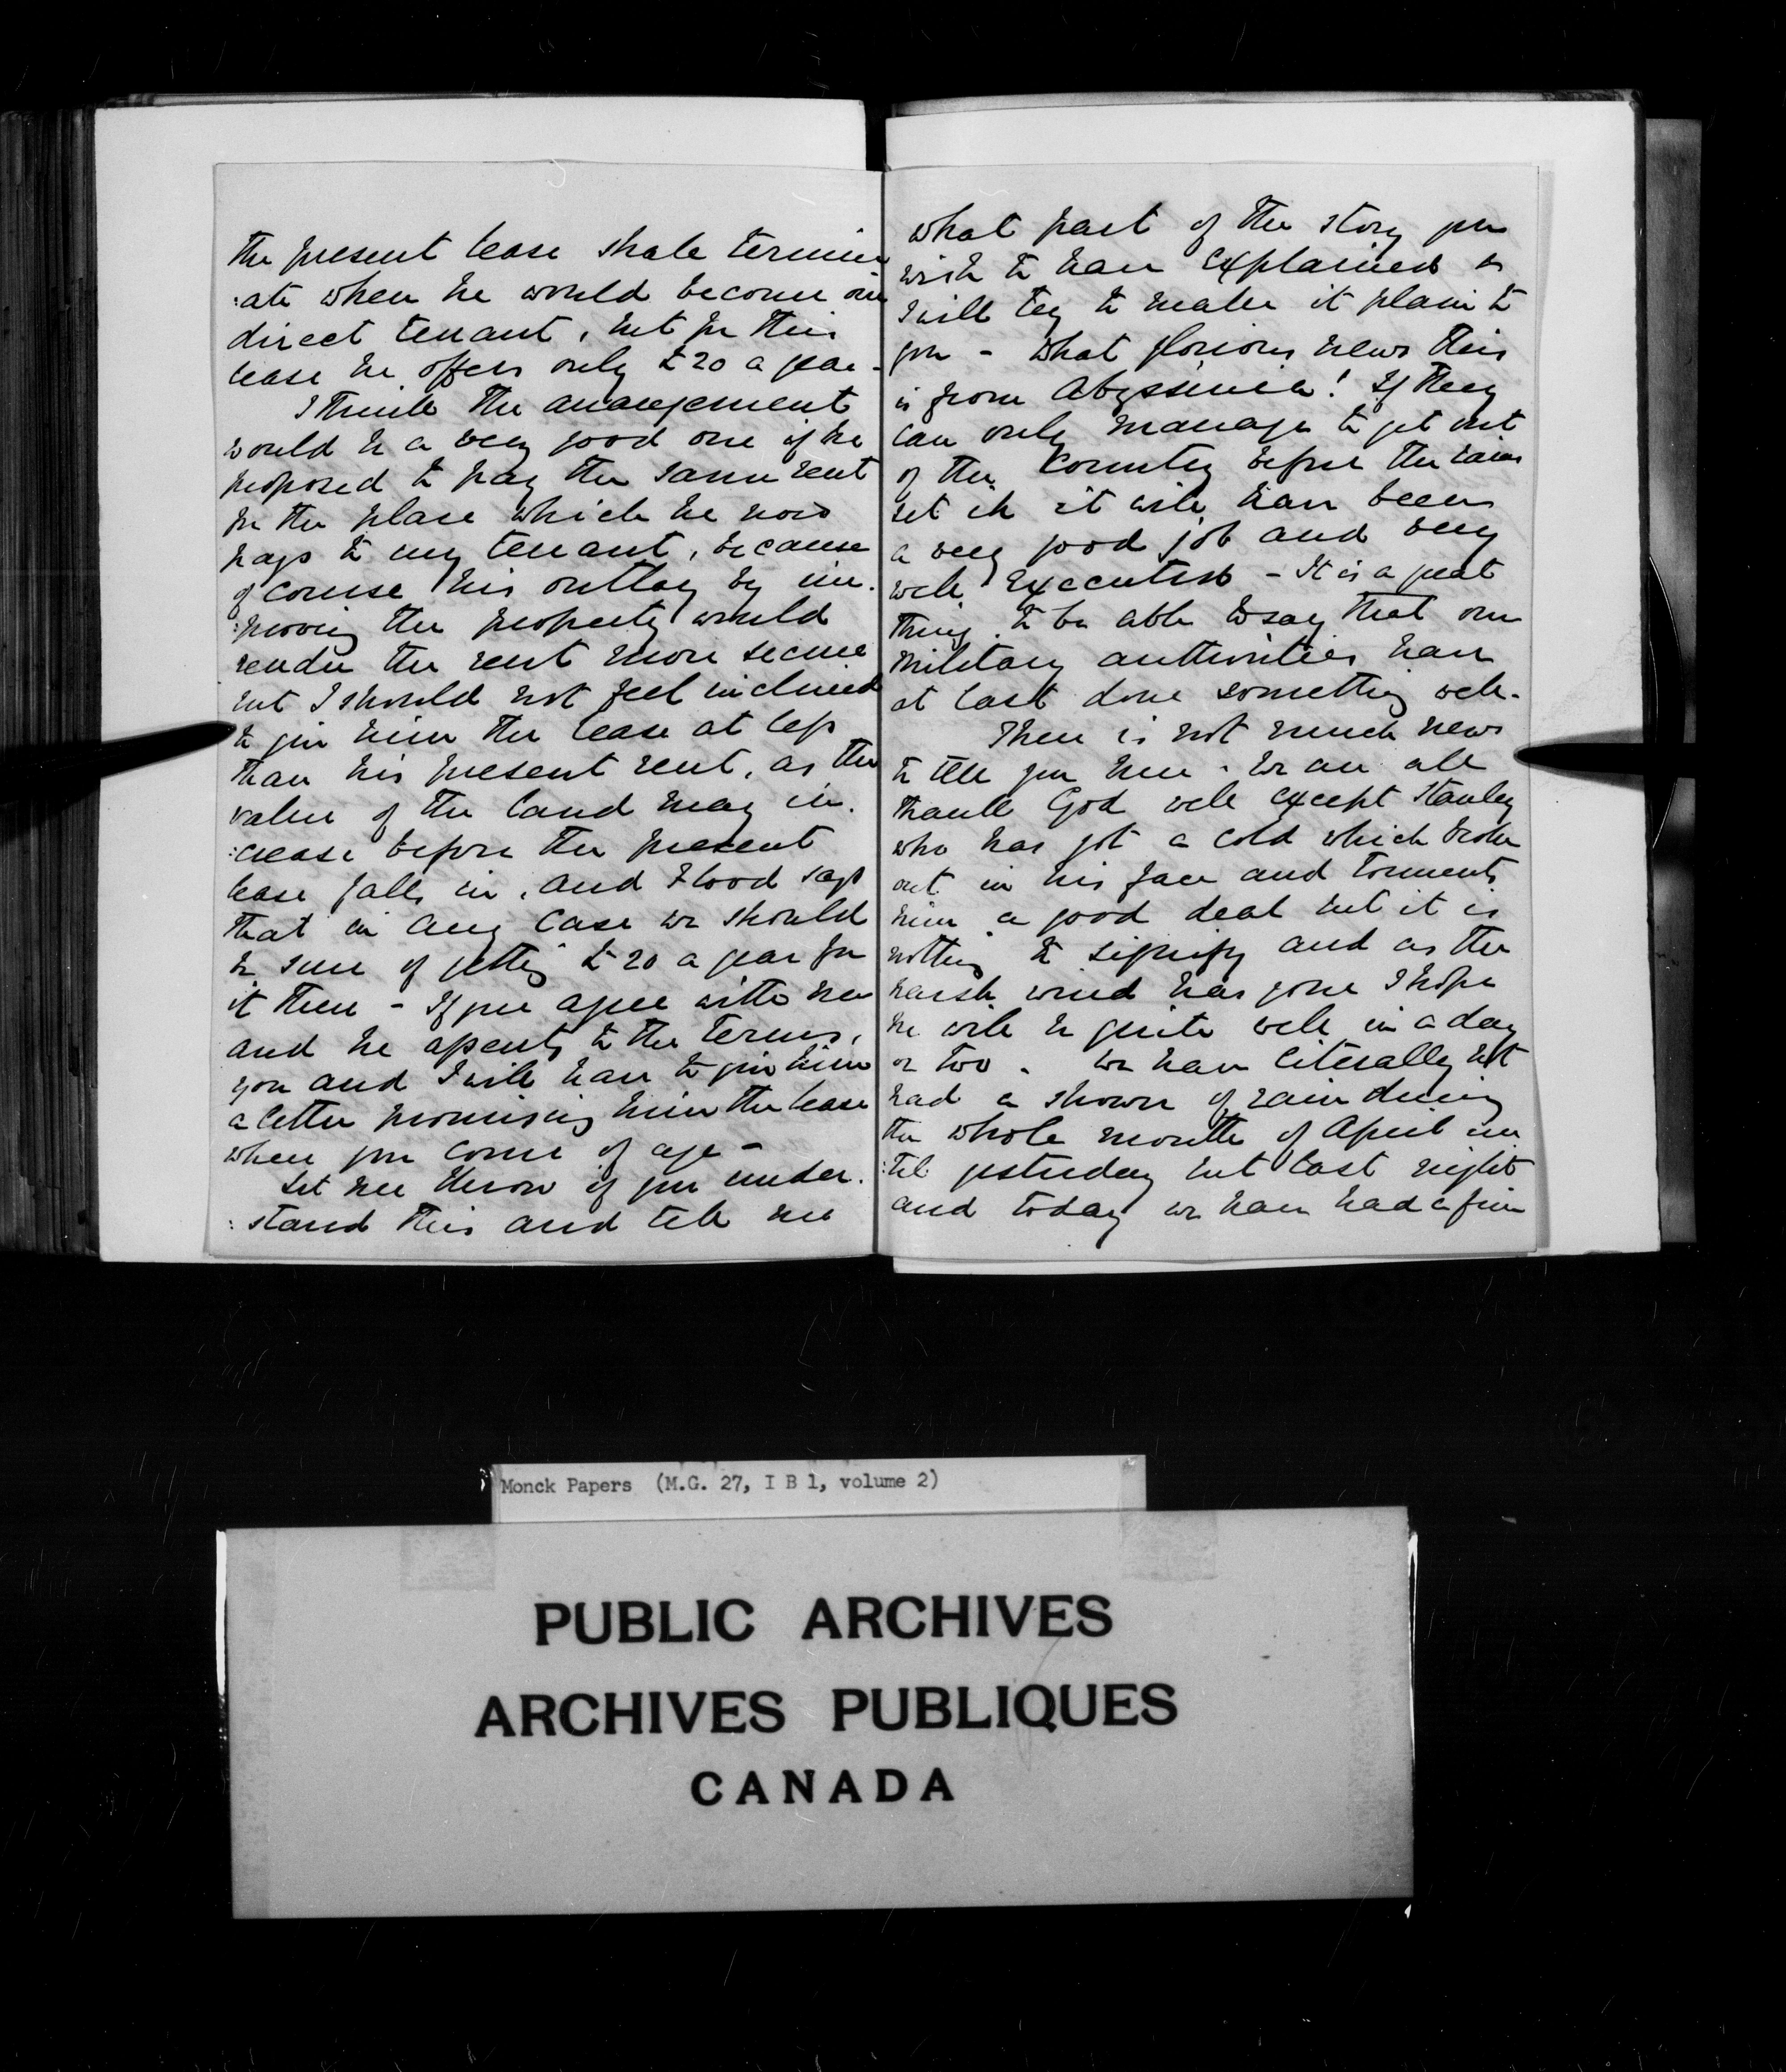 the present lease shall termin
:ate when he would become our
direct tenant, but for this
lease he offers only £20 a year -
I think the arrangement
would be a very good one if he
proposed to pay the same rent
for the place which he now
pays to my tenant, because
of course his outlay by im.
:proving the property would
render the rent more secure
but I should not feel inclined
to give him the lease at less
than his present rent, as the
value of the land may in.
:crease before the present
lease falls in, and Flood says
that in any case we should
be sure of getting £20 a year for
it then - If you agree with me
and he assents to the terms,
you and I will have to give him
a letter promising him the lease
when you come of age -
Let me know if you under.
:stand this and tell me
what part of the story you
wish to have explained &
I will try to make it plain to
you - What glorious news this
is from Abyssinia! If they
can only manage to get out
of the country before the rains
set in it will have been
a very good job and very
well executed - It is a great
thing to be able to say that our
military authorities have
at last done something well.
There is not much news
to tell you here - we are all
thank God well except Stanley
who has got a cold which broke
out in his face and torments
him a good deal but it is
nothing to signify and as the
harsh wind has gone I hope
he will be quite well in a day
or two - We have literally not
had a shower of rain during
the whole month of April un
:til yesterday but last night
and today we have had a fine
Monck Papers (M.G. 27, I B 1, volume 2)
PUBLIC ARCHIVES
ARCHIVES PUBLIQUES
CANADA